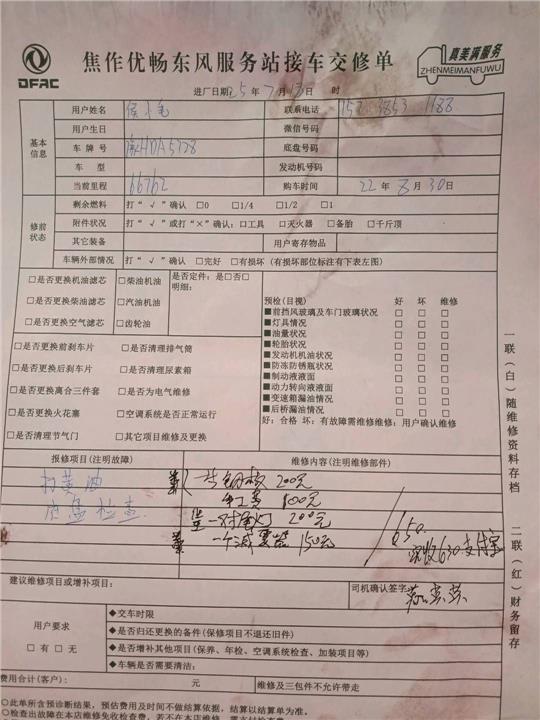 DFAC
焦作优畅东风服务站接车交修单
真美满服务
ZHENMEIMANFUWU
进厂日期25年7月13日 时
基本信息
用户姓名 侯小毛 联系电话
用户生日 微信号码
车 牌 号 底盘号码
车 型 发动机号码
当前里程 66762 购车时间 22年8月30日
修前状态
剩余燃料 打“√”确认 □0 □1/4 □1/2 □1
附件状况 打“√”或打“×”确认:□工具 □灭火器 □备胎 □千斤顶
其它装备 用户寄存物品
车辆外部情况 打“√”确认 □完好 □有损坏(有损坏部位标注有下表左图)
□是否更换机油滤芯 □柴油机油 是否定件:是□否□
明细:
□是否更换柴油滤芯 □汽油机油
□是否更换空气滤芯 □齿轮油
□是否更换前刹车片 □是否清理排气筒
□是否更换后刹车片 □是否清理尿素箱
□是否更换离合三件套 □是否为电气维修
□是否更换火花塞 □空调系统是否正常运行
□是否清理节气门 □其它项目维修及更换
预检(目视) 好 坏 维修
■前挡风玻璃及车门玻璃状况 □ □ □
■灯具情况 □ □ □
■油量状况 □ □ □
■轮胎状况 □ □ □
■发动机机油状况 □ □ □
■防冻防锈瓶状况 □ □ □
■制动液液面 □ □ □
■动力转向液液面 □ □ □
■变速箱漏油情况 □ □ □
■后桥漏油情况 □ □ □
好:合格 坏:有故障需维修维修:用户确认维修
报修项目(注明故障) 维修内容(注明维修部件)
打黄油
检查
200元
工费 100元
一对尾灯 200元
一个减震器 150元
650
实收630支付宝
建议维修项目或增补项目:
司机确认签字:
用户要求
□有 □无
◆交车时限
◆是否归还更换的备件(保修项目不退还旧件)
◆是否增补其他项目(保养、年检、空调系统检查、加装项目等)
◆车辆是否需要清洁:
费用合计(客户): 元 维修及三包件不允许带走
○此单所含预诊断结果,预估费用及时间不做结算依据,结算以结算单为准。
○检查出故障在本店维修免收检查费,若不在本店维修,需支付检查费
一联(白)随维修资料存档
二联(红)财务留存